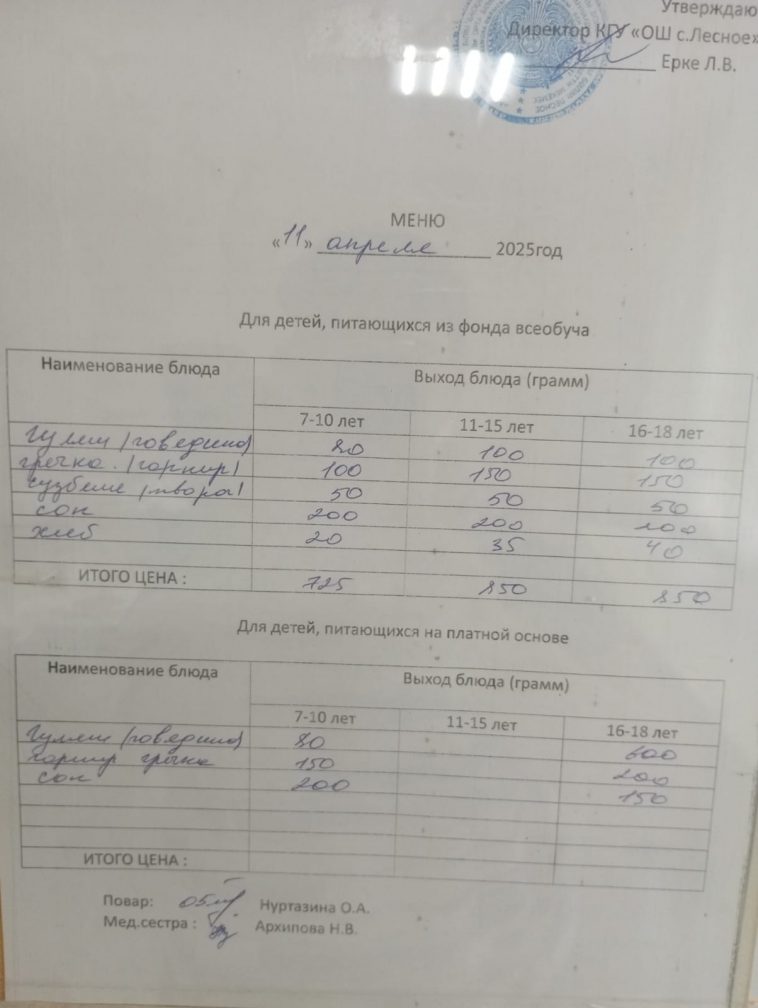 Утверждаю
Директор КГУ «ОШ с.Лесное»
Ерке Л.В.
МЕНЮ
«11» апреля 2025год
Для детей, питающихся из фонда всеобуча
Наименование блюда Выход блюда (грамм)
7-10 лет 11-15 лет 16-18 лет
Гуляш (говядина) 80 100 100
гречка (гарнир) 100 150 150
сузбеше (творог) 50 50 50
сок 200 200 200
хлеб 20 35 40
ИТОГО ЦЕНА : 725 850 850
Для детей, питающихся на платной основе
Наименование блюда Выход блюда (грамм)
7-10 лет 11-15 лет 16-18 лет
Гуляш (говядина) 80 600
гарнир гречка 150 200
сок 200 150
ИТОГО ЦЕНА :
Повар: Нуртазина О.А.
Мед.сестра : Архипова Н.В.